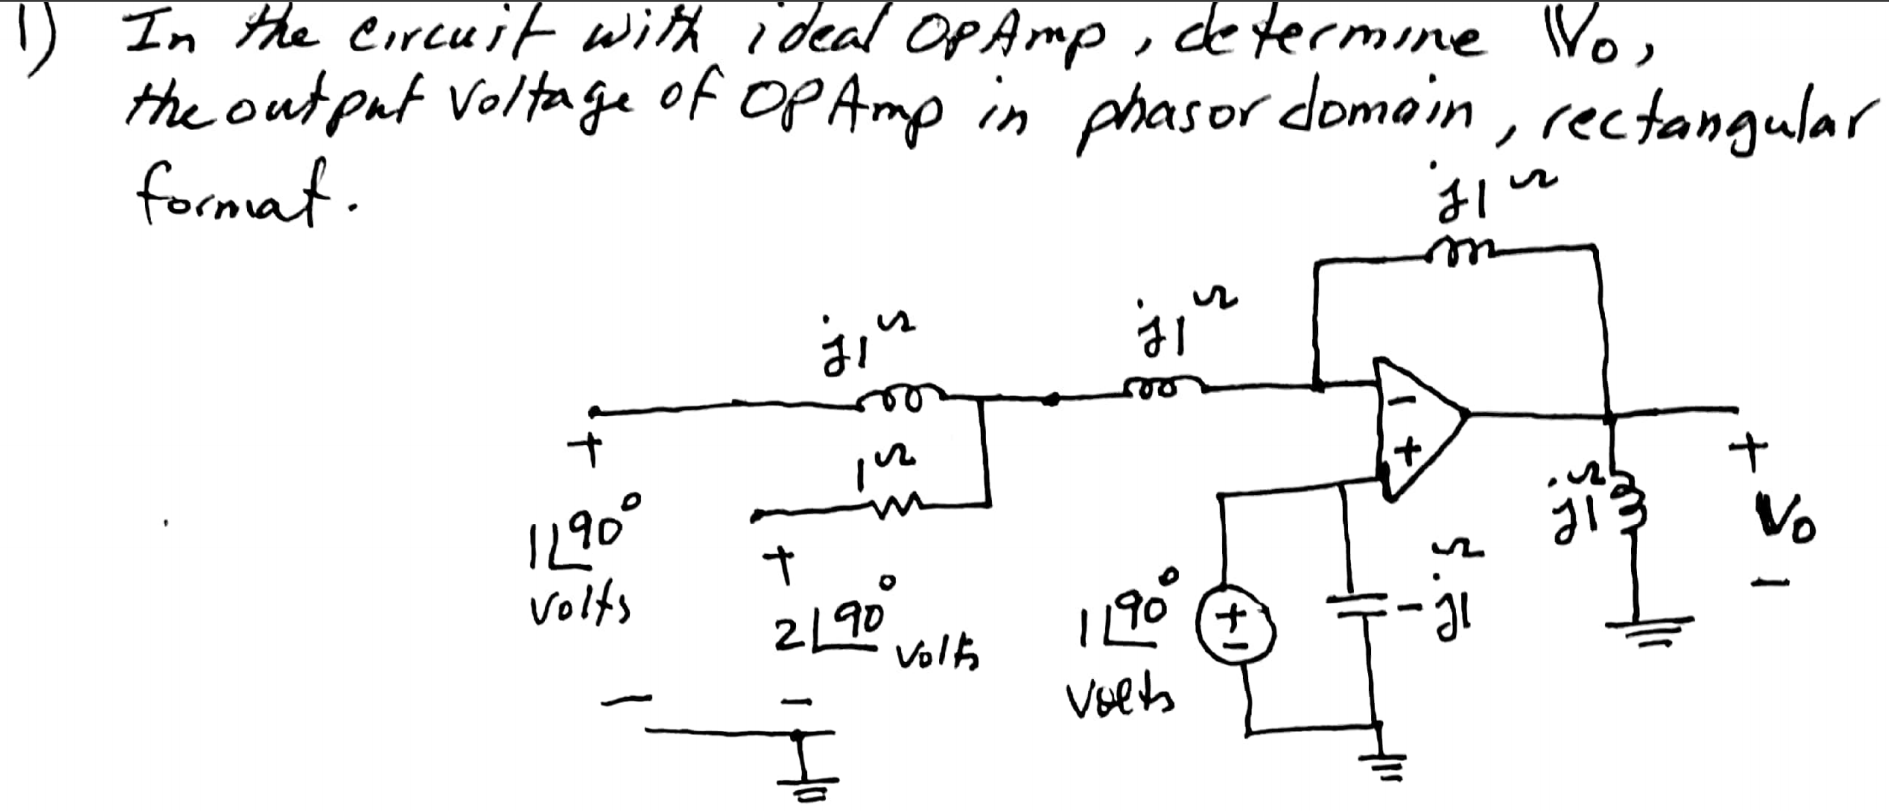 1) In the circuit with ideal OPAmp, determine Vo,
the output voltage of OPAmp in phasor domain, rectangular
format.
j1Ω
j1Ω
j1Ω
- +
1Ω
+
+
1∠90°
volts
+
2∠90°
volts
1∠90°
volts
+
-
-j1Ω
j1Ω
Vo
-
-
-